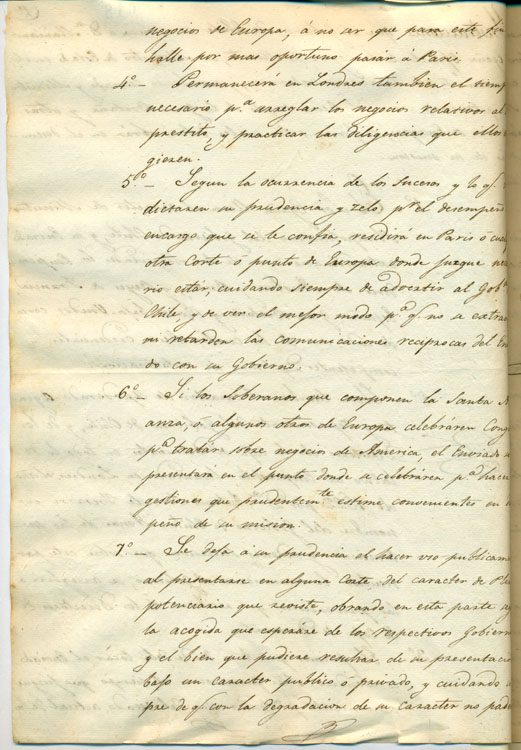 negocios de Europa, á no ser que para este fin
halle por mas oportuno pasár á Paris.
4.° — Permanecerá en Londres tambien el tiemp
necesario p.ª arreglar los negocios relativos al
prestito, y practicar las diligencias que ellos
gieren.
5.° — Segun la ocurrencia de los sucesos y lo q.
dictaren su prudencia y zelo p.r el desempeñ
encargo que se le confia, residirá en Paris ó cua
otra Corte ó punto de Europa donde juzgue ne
rio estár, cuidando siempre de advertir al Gob.
Chile, y de ver el mejor modo p.ª q. no se extrav
ni retarden las comunicaciones reciprocas del En
do con su Gobierno.
6.° — Si los Soberanos que componen la Santa A
anza, ó algunos otros de Europa celebráren Cong
p.ª tratar sobre negocios de America, el Enviado se
presentará en el punto donde se celebrárea p.ª hacer
gestiones que prudentem.te estime convenientes en
peño de su mision.
7.° — Se deja á su prudencia el hacer uso publicam
al presentarse en alguna Corte, del caracter de Ple
potenciario que reviste, obrando en esta parte
la acogida que esperáre de los respectivos Gobiern
y el bien que pudiere resultar de su presentac
bajo un caracter publico ó privado, y cuidando
pre de q. con la degradacion de su caracter no pad